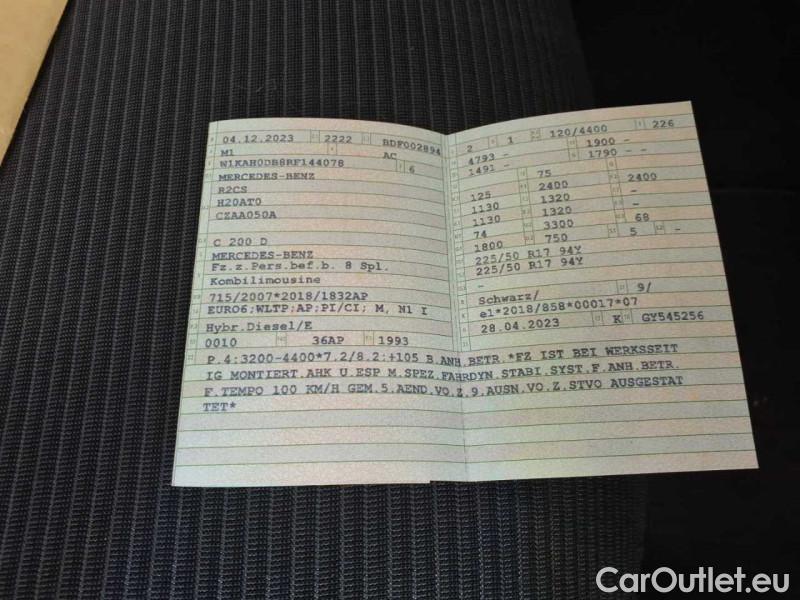 04.12.2023 2222 BDF002894
M1 AC
W1KAH0DB8RF144078 6
MERCEDES-BENZ
R2CS
H20AT0
CZAA050A
C 200 D
MERCEDES-BENZ
Fz.z.Pers.bef.b. 8 Spl.
Kombilimousine
715/2007*2018/1832AP
EURO6;WLTP;AP;PI/CI; M, N1 I
Hybr.Diesel/E
0010 36AP 1993
2 1 120/4400 226
4793 - 1900 -
1491 - 1790 -
75
125 2400 2400
1130 1320 -
1130 1320 -
74 3300 68
1800 750 5 -
225/50 R17 94Y
225/50 R17 94Y
-
-
Schwarz/ 9/
e1*2018/858*00017*07
28.04.2023 K GY545256
P.4:3200-4400*7.2/8.2:+105 B.ANH.BETR.*FZ IST BEI WERKSSEIT
IG MONTIERT.AHK U.ESP M.SPEZ.FAHRDYN.STABI.SYST.F.ANH.BETR.
F.TEMPO 100 KM/H GEM.5.AEND.VO.Z.9.AUSN.VO.Z.STVO AUSGESTAT
TET*
CarOutlet.eu